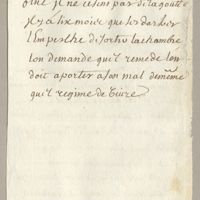 il y a six mois que les dartres
l'Empesche de sortir la chambre
lon demande quel remede lon
doit aporter a son mal de mesme
quel regime de vivre